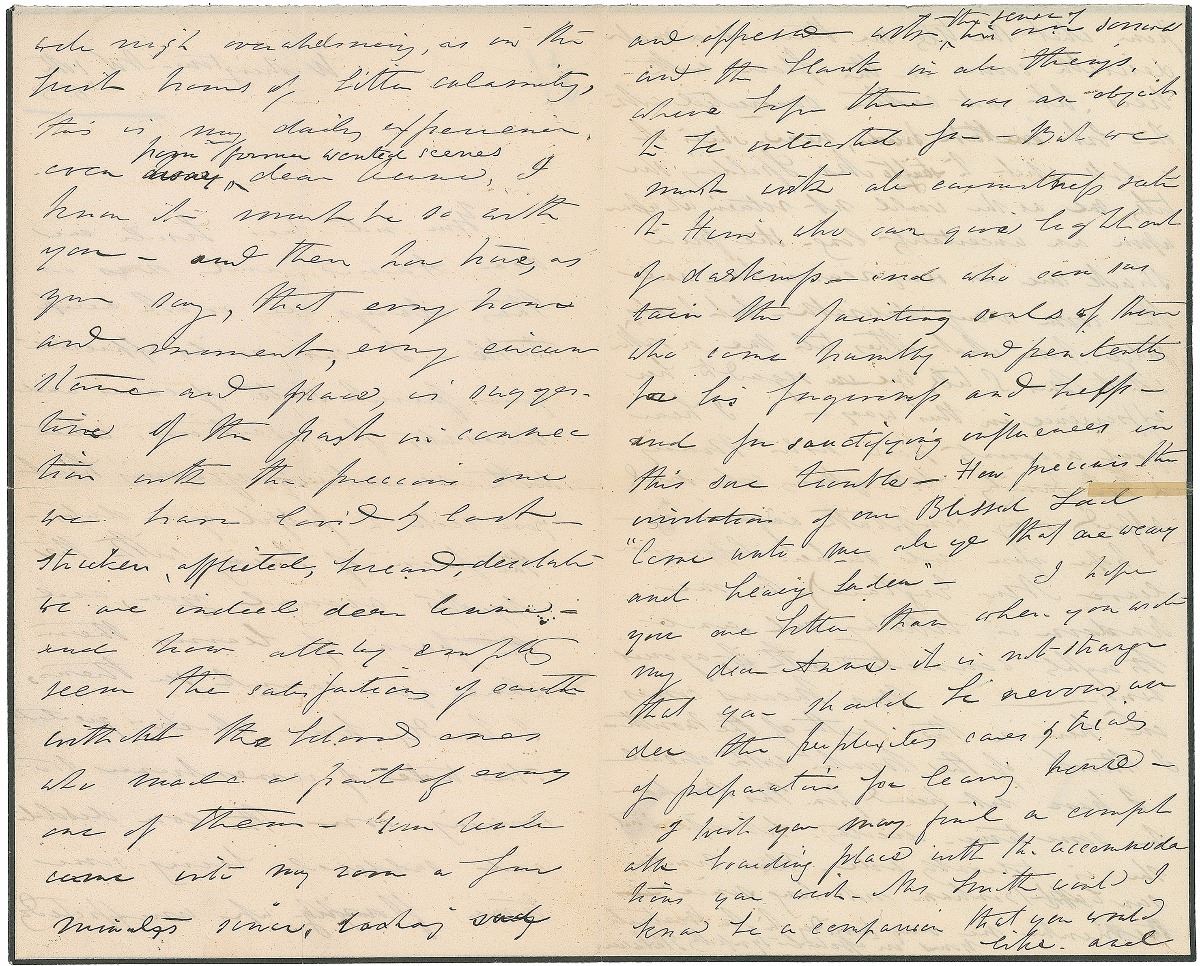 well nigh overwhelming, as in the
first hours of bitter calamity,
this is my daily experience,
from former wonted scenes
even away, dear Annie, I
know it must be so with
you - and then how true, as
you say, that every hour
and moment, every circum
stance and place, is sugges-
tive of the past in connec
tion with the precious one
we have loved & lost -
stricken, afflicted, bereaved, desolate
we are indeed dear Annie -
and how utterly empty
seem the satisfactions of earth
without the beloved ones
who made a part of every
one of them - Your Uncle
came into my room a few
minutes since, looking sad
the sense of
and oppressed with his own sorrow
and the blank in all things,
where before there was an object
to be interested for - But we
must with all earnestness
to Him, who can give light out
of darkness - and who can sus
tain the fainting souls of them
who come humbly and penitently
for his forgiveness and help -
and for sanctifying influences in
this sore trouble - How precious the
invitation of our Blessed Lord
"Come unto me all ye that are weary
and heavy laden" - I hope
you are better than when you wrote
my dear Anna. it is not strange
that you should be nervous un
der the perplexities cares & trials
of preparation for leaving home -
I wish you may find a comfort
able boarding place with the accommoda
tions you wish - Mrs Smith would I
know be a companion that you would
like. and